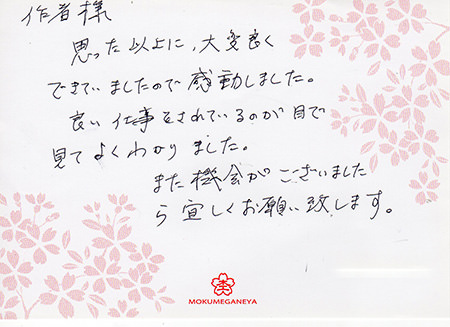 作者様
思った以上に、大変良く
できていましたので感動しました。
良い仕事をされているのが目で
見てよくわかりました。
また機会がございました
ら宜しくお願い致します。
MOKUMEGANEYA